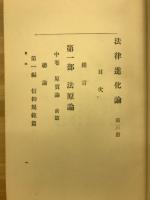 法律進化論 第三册
目次
緒言
第一部 法原論
中卷 原質論 前篇
總論
第一編 信仰規範篇